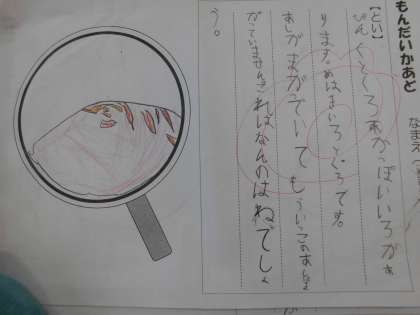 もんだいかあど
なまえ
【とい】
ぴんくとくろあかっぽいいろがあ
ります。めはまいろとくろです。
あしがまがっていてもういっこのあしま
がっていません。これはなんのはねでしょ
う。